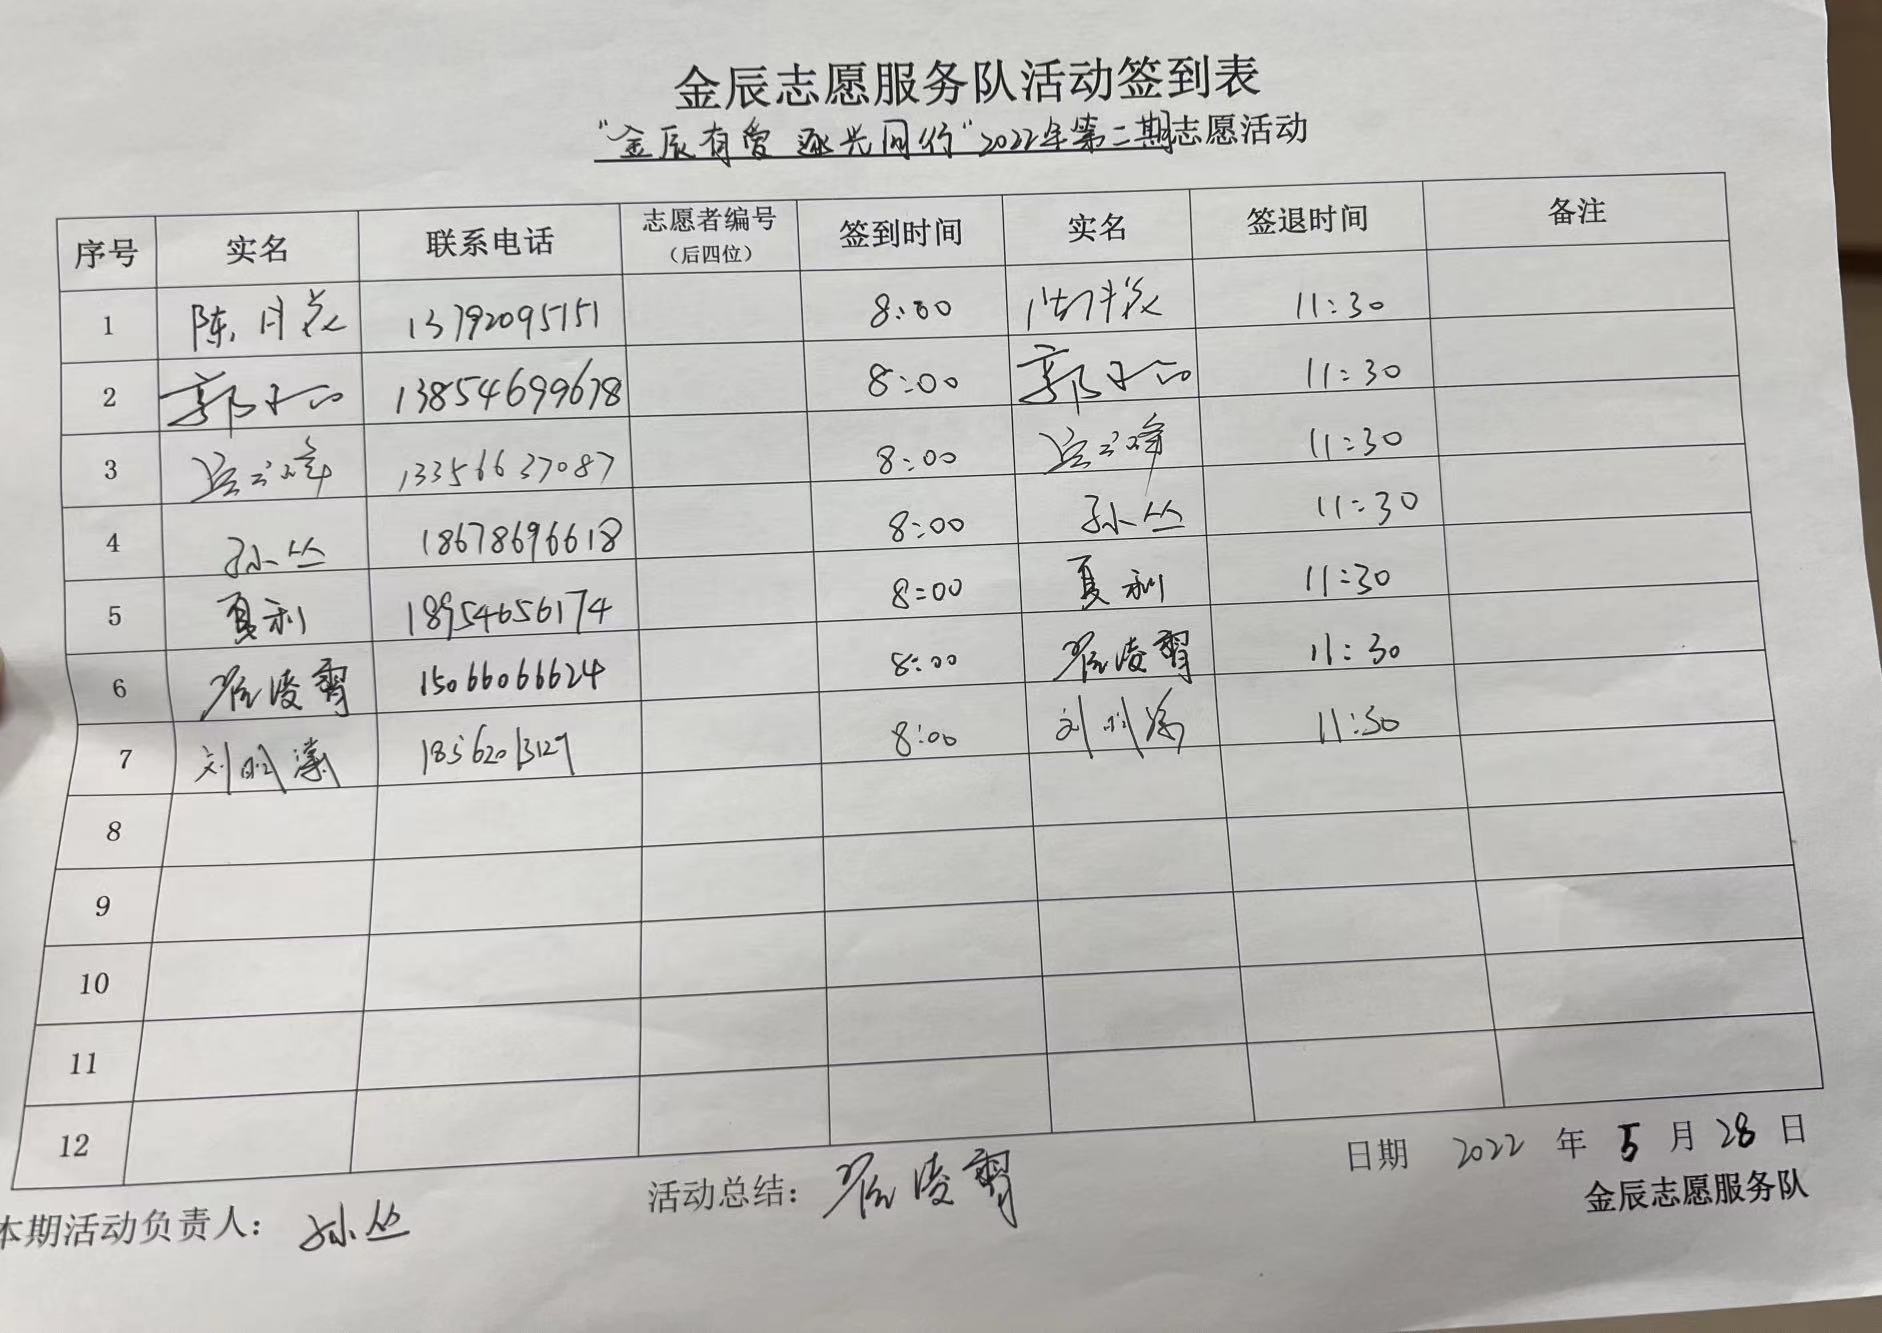 金辰志愿服务队活动签到表
"金辰有爱 逐光同行"2022年第二期志愿活动
序号 实名 联系电话 志愿者编号(后四位) 签到时间 实名 签退时间 备注
1 陈月 13792095151 8:00 11:30
2 郭 13854699678 8:00 郭 11:30
3 13356637087 8:00 11:30
4 孙丛 18678696618 8:00 孙丛 11:30
5 夏利 18954656174 8:00 夏利 11:30
6 凌霄 15066066624 8:00 凌霄 11:30
7 刘明 18562013127 8:00 刘明 11:30
8
9
10
11
12
本期活动负责人: 孙丛 活动总结: 凌霄 日期 2022 年 5 月 28 日
金辰志愿服务队